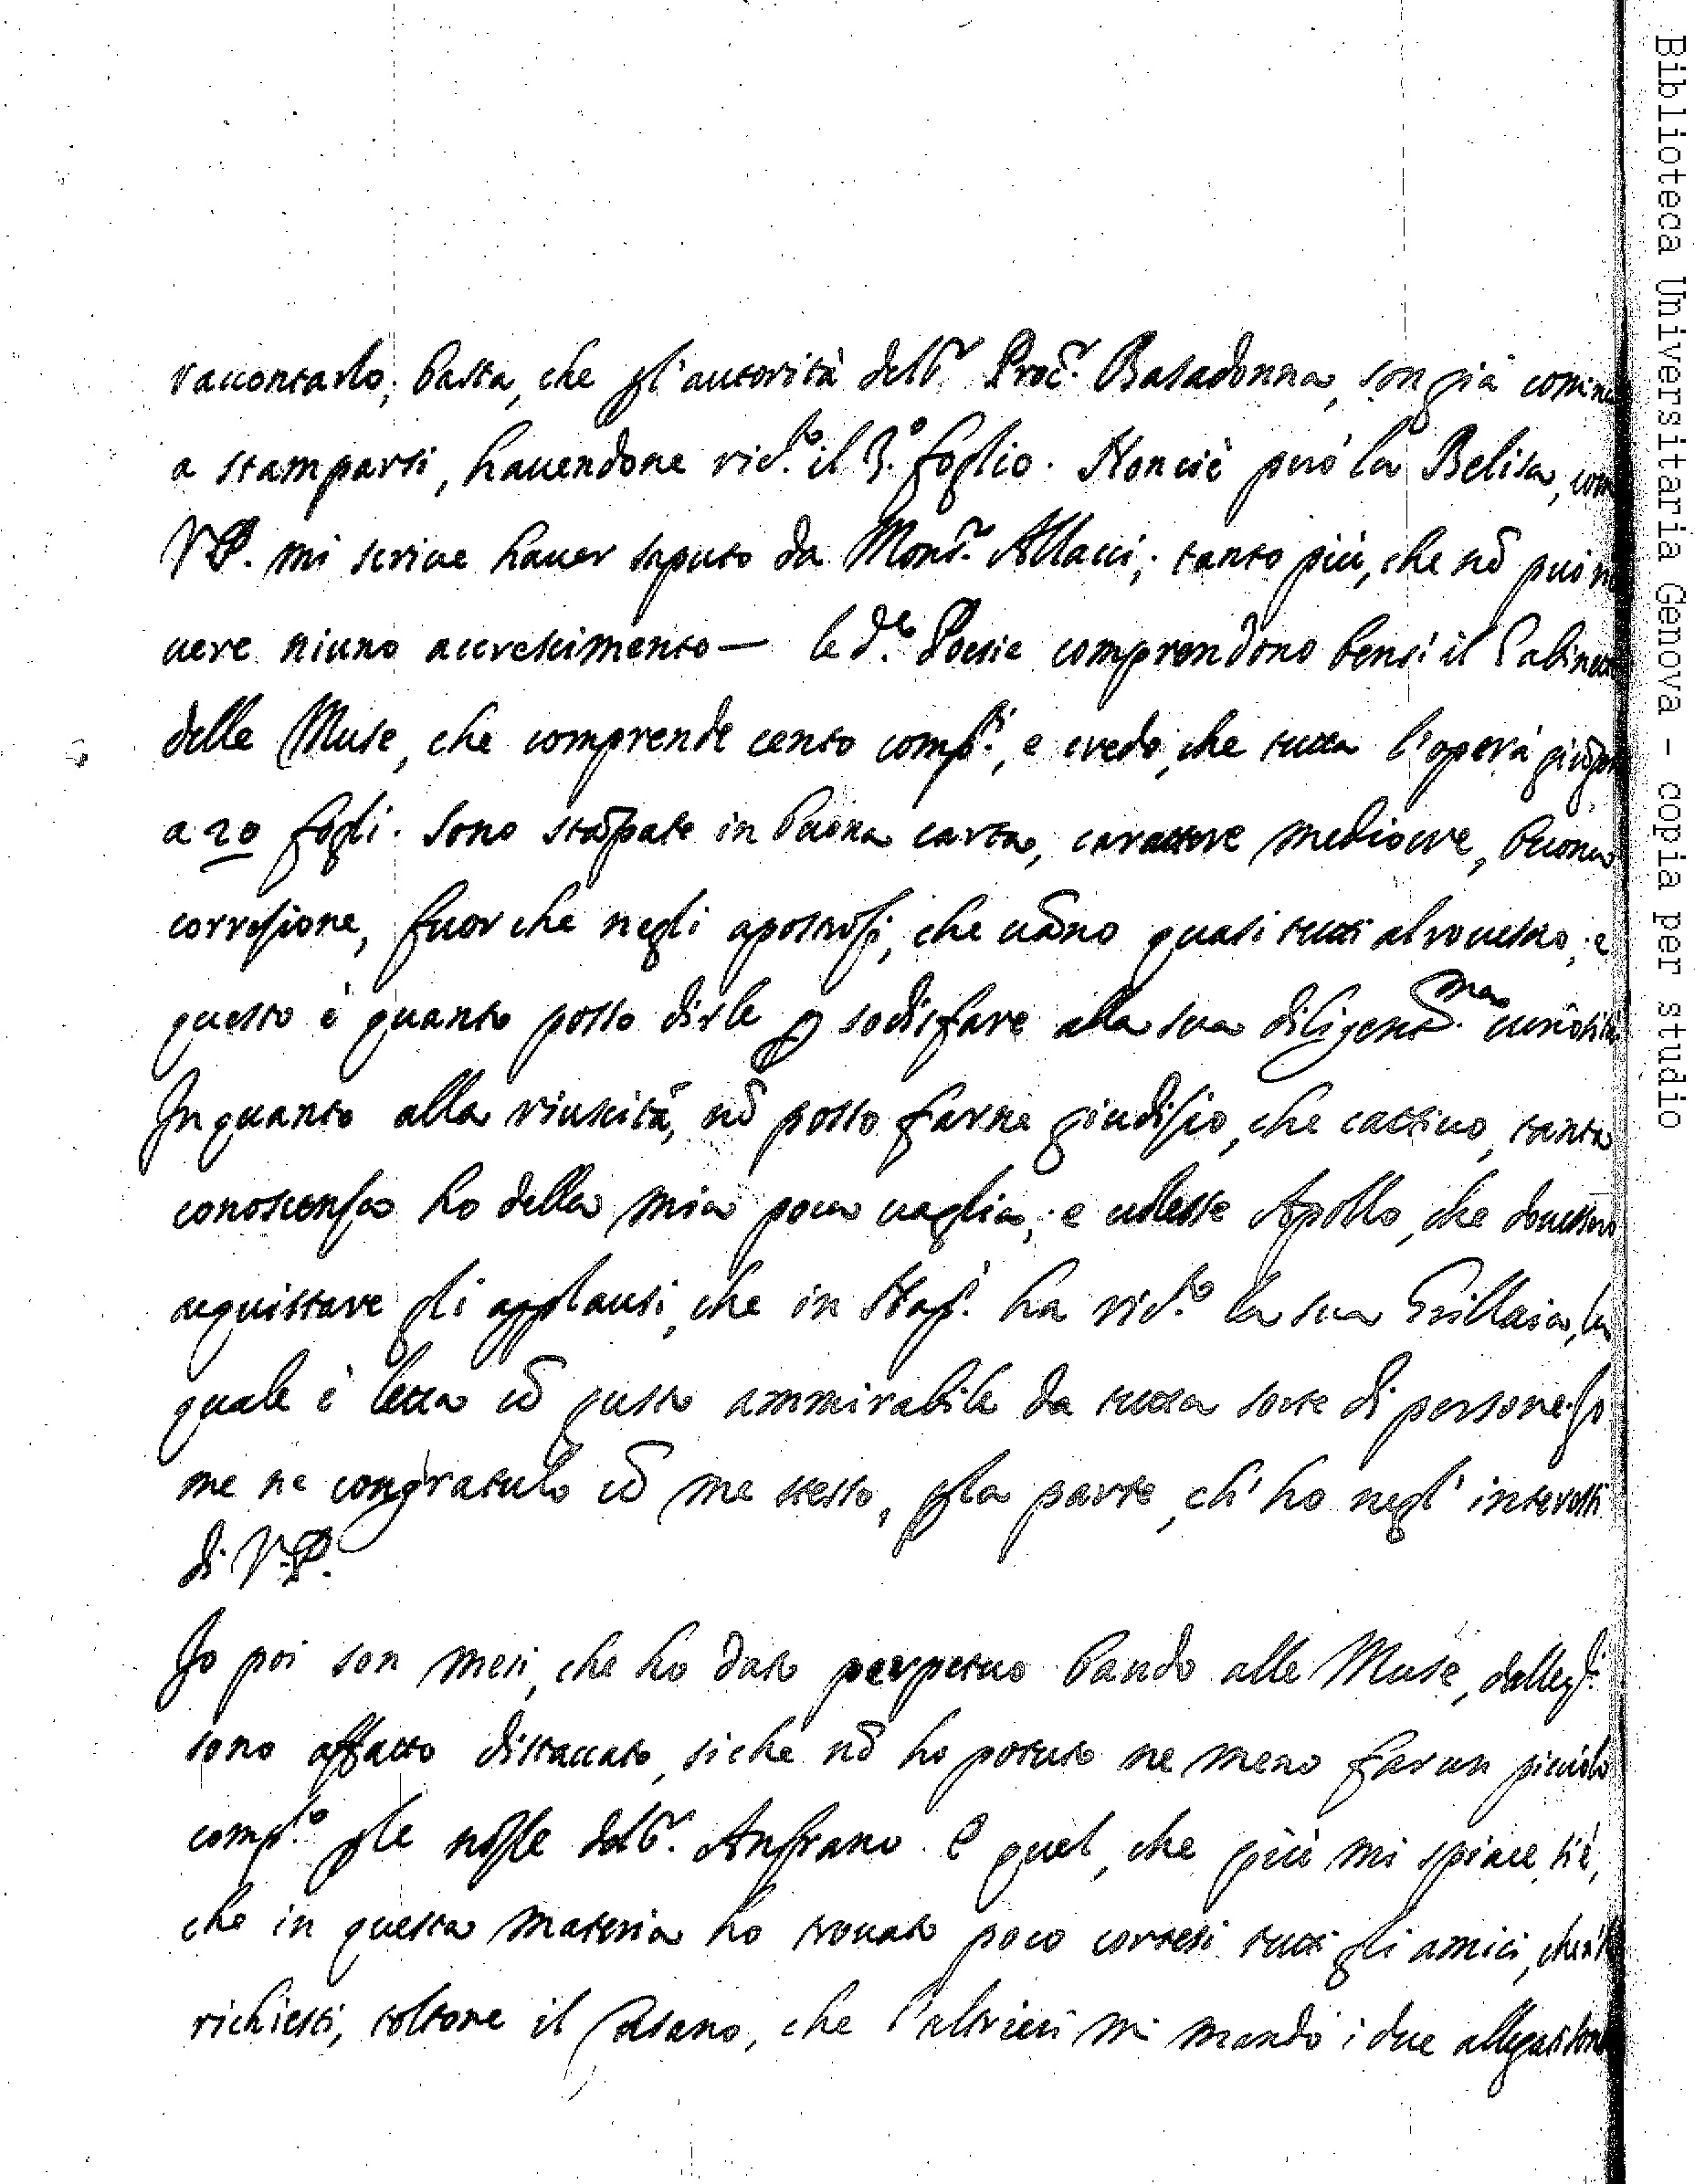 raccontarlo; basta, che p l'autorità del Sr. Procr. Basadonna, son già cominc
a stamparsi, hauendone rictô. il 3º. foglio. Non ui è però la Belisa, come
V.P. mi scriue hauer saputo da Monsr. Allacci; tanto più, che nō può
uere niuno accrescimento — le de. Poesie comprendono bensì il Gabinetto
delle Muse, che comprende cento compti., e credo, che tutta l'opera
a 20 fogli. Sono stāpate in buona carta, carattere mediocre, buona
correzione, fuor che negli apostrofi, che uāno quasi tutti al rouescio; e
questo è quanto posso dirle p sodisfare alla sua diligentma. curiosità
In quanto alla riuscita, nō posso farne giudizio, che cattiuo, tanta
conoscenza ho della mia poca uaglia; e uolesse Apollo, che douessero
acquistare gli applausi, che in Nap. ha ricto. la sua Grillaia, la
quale è letta cō gusto ammirabile da tutta sorte di persone. Io
me ne congratulo cō me stesso, p la parte, ch' ho negl' interessi
di V.P.
Io poi son mesi, che ho dato perpetuo bando alle Muse, dalle qli.
sono affatto distaccato, siche nō ho potuto ne meno far un piccolo
compto. p le nozze del Sr. Ansrano. E quel, che più mi spiace si è,
che in questa materia ho trouato poco cortesi tutti gli amici,
richiesti, toltone il Casano, che l'altrieri mi mandò i due allegati
Biblioteca Universitaria Genova - copia per studio